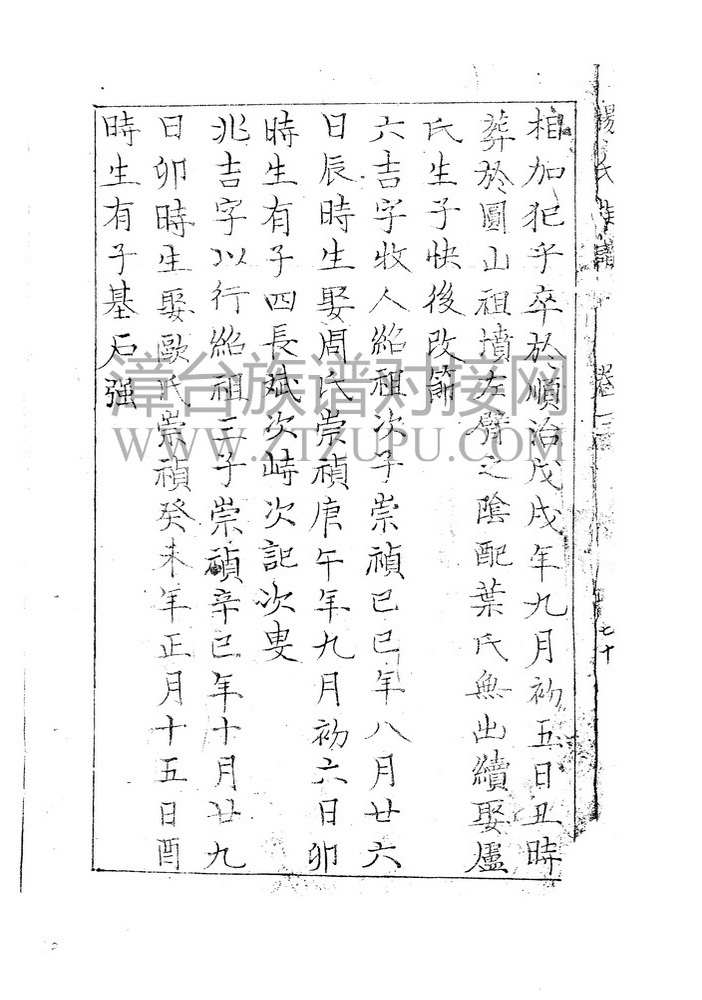 楊氏族譜 卷一 七十
相加犯乎卒於順治戊戌年九月初五日丑時
葬於圓山祖墳左臂之陰配葉氏無出續娶盧
氏生子快後改節
六吉字收人紹祖次子崇禎己巳年八月廿六
日辰時生娶周氏崇禎庚午年九月初六日卯
時生有子四長斌次峙次記次叟
兆吉字以行紹祖三子崇禎辛巳年十月廿九
日卯時生娶歐氏崇禎癸未年正月十五日酉
時生有子基石強
漳台族谱对接网
WWW.ZTZUPU.COM